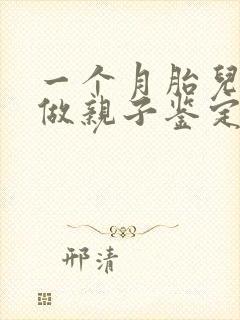 一个月胎兒
做親子鉴定
邢清